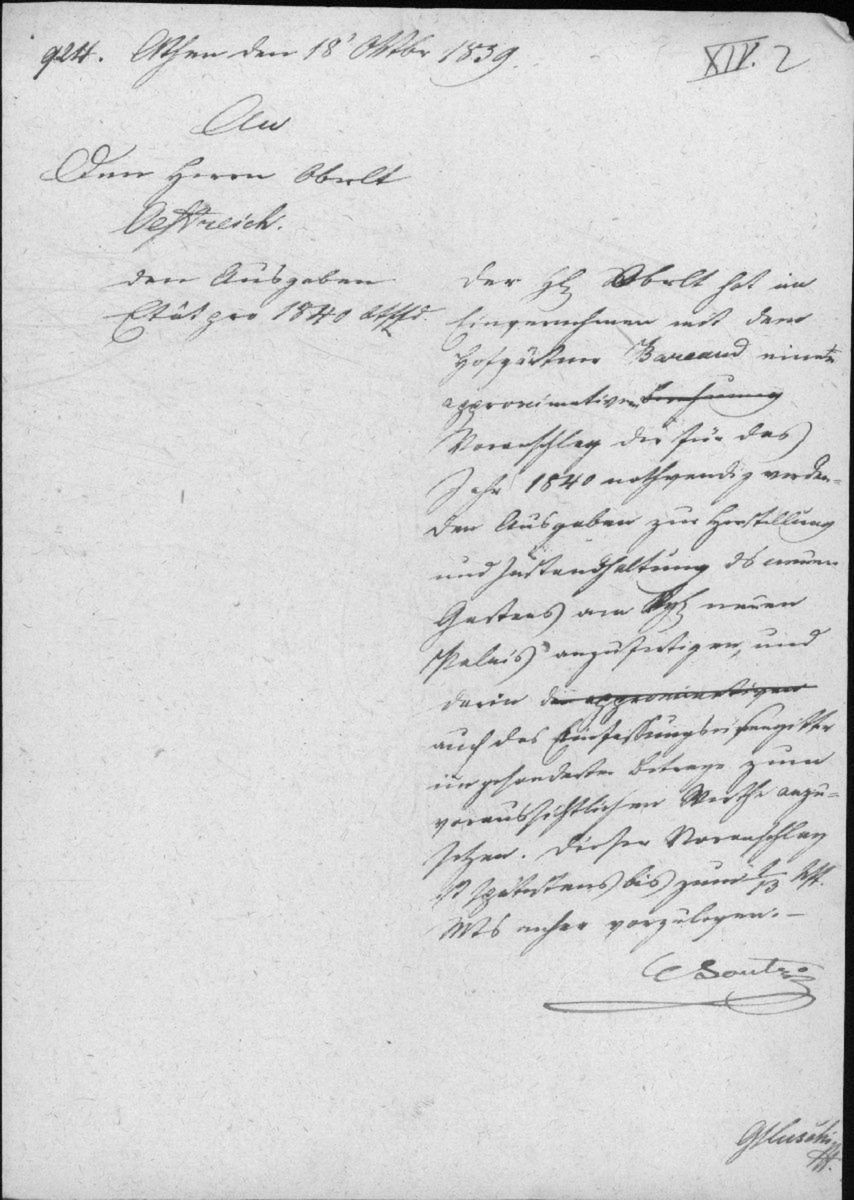 924. Athen den 18' Oktbr 1839.
XIV. 2
An
Den Herrn Oberlt
Oestreich.
den Ausgaben
Etat pro 1840 betffd.
Der H Oberlt hat im
Einvernehmen mit dem
Hofgärtner Bareaud einen
approximativen Berechnung
Voranschlag die für das
Jahr 1840 nothwendig werden-
den Ausgaben zur Herstellung
und Instandhaltung des neuen
Gartens am Kgl neuen
Palais anzufertigen, und
darin die approximativen
auch das Einfassungseisengitter
im gesonderten Betrage zum
voraussichtlichen Werthe anzu-
setzen. Dieser Voranschlag
ist spätestens bis zum 1/13
Mts anher vorzulegen. –
Soutzo